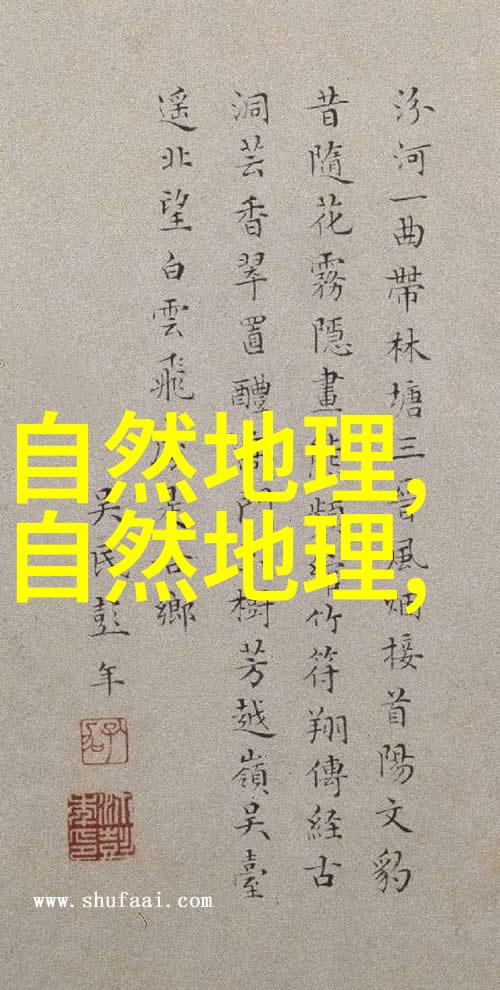 汾河一曲帶林塘三晉風烟接首陽文豹
昔隨花霧隱畫頻竹符翔傳經古
洞芸香翠置醴門樹芳越嶺吳臺
遥北望白雲飛是鄉
吳民彭年
自然地理,
自然地理,
www.shufaai.com